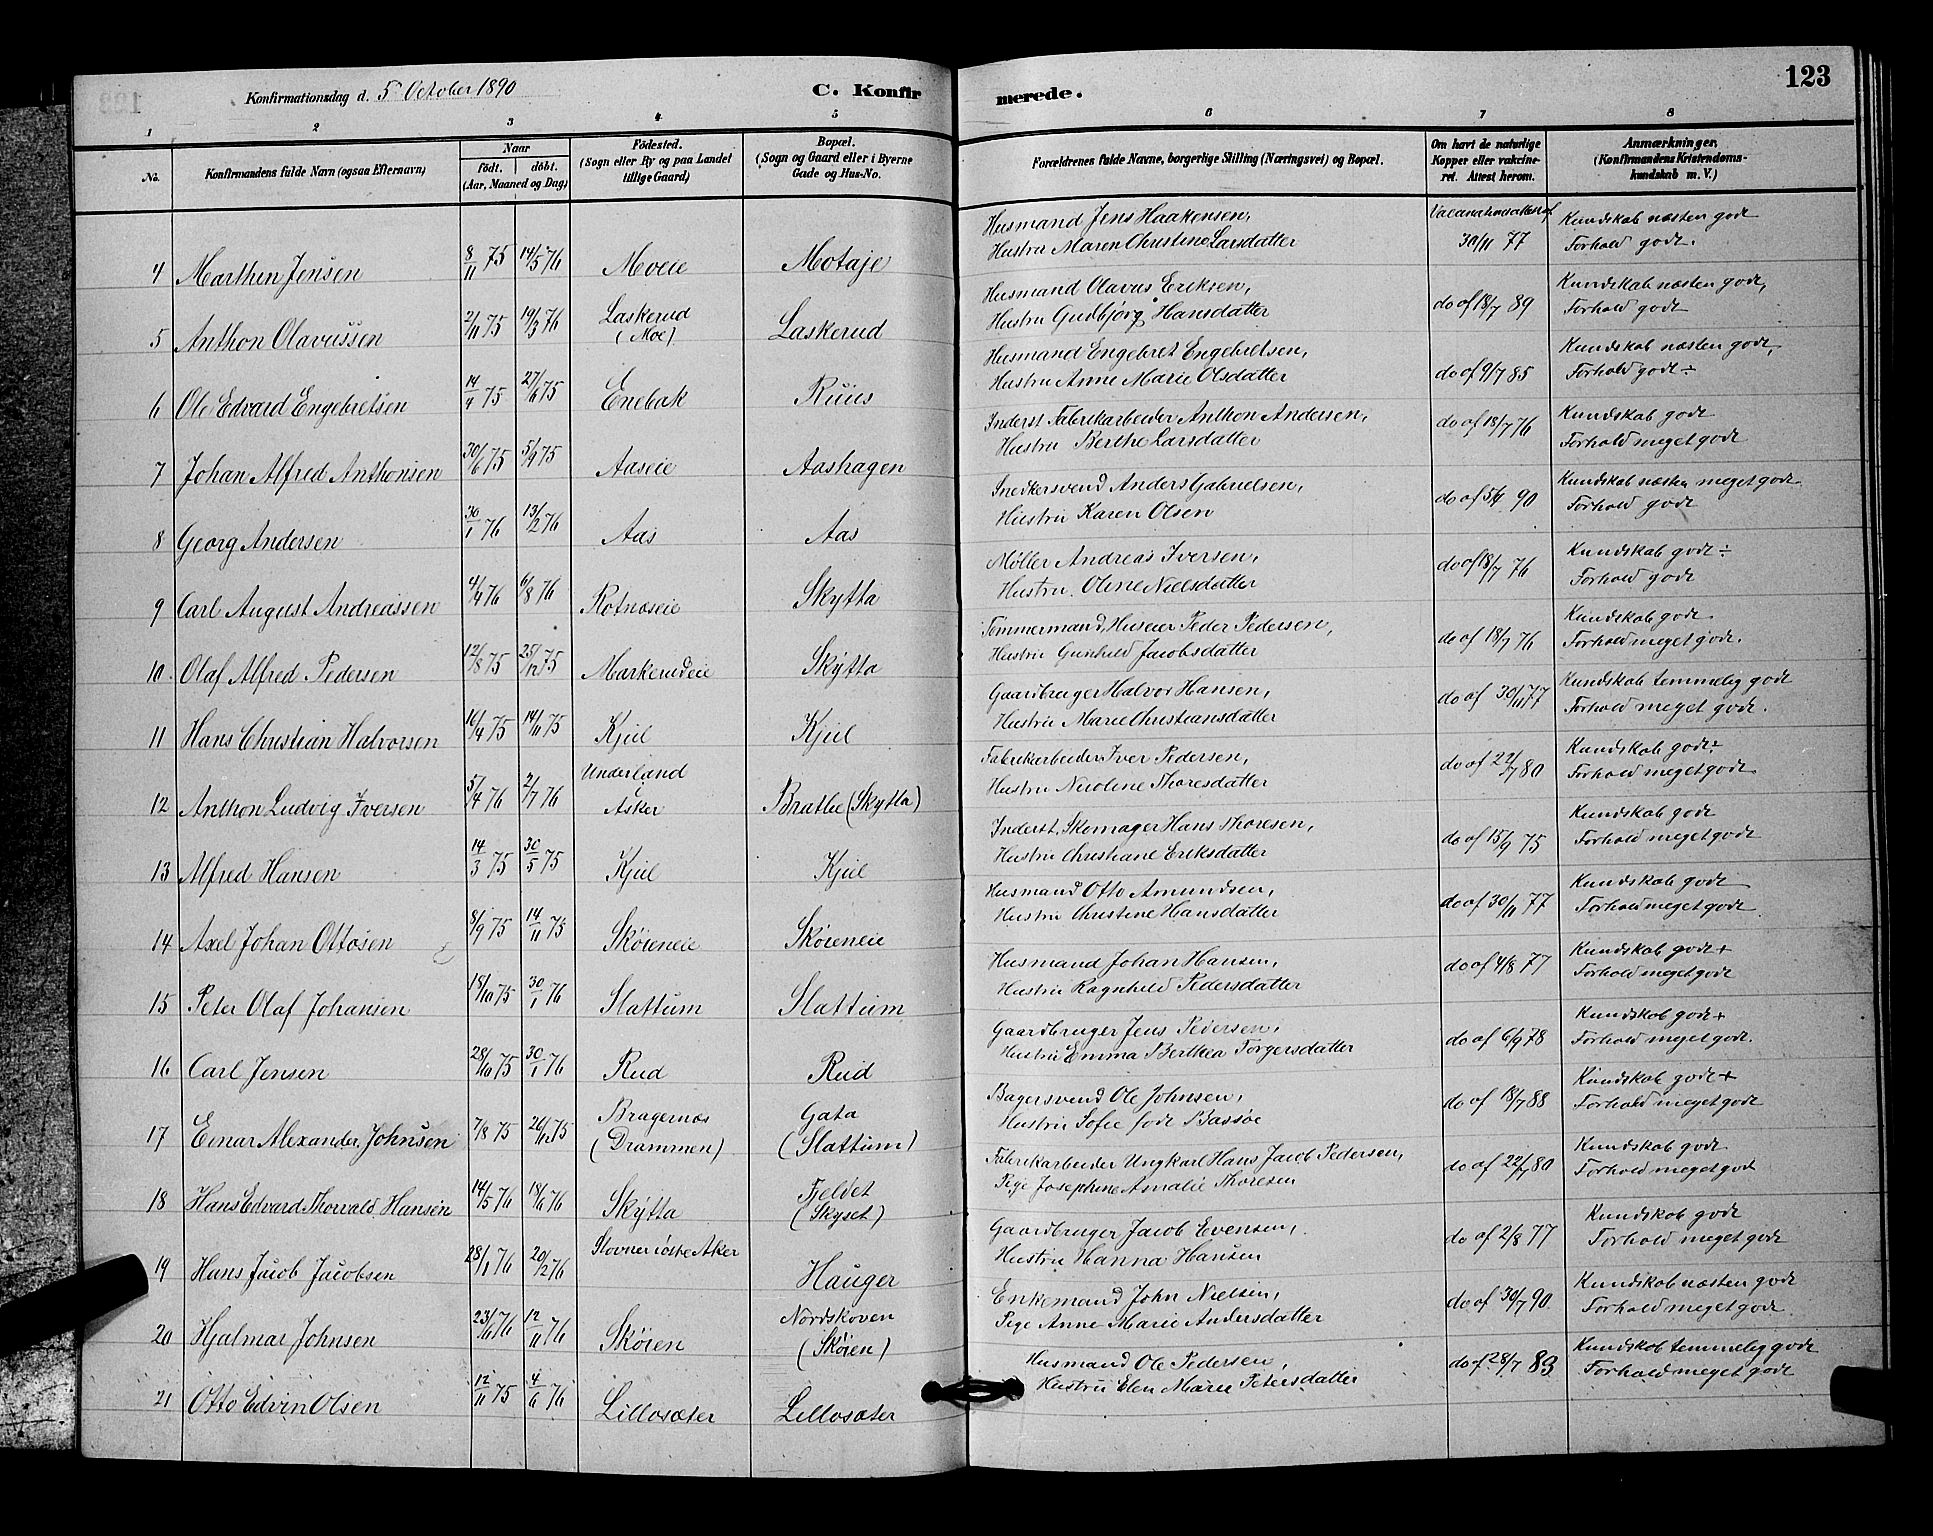 Konfirmationsdag d. 5 October 1890 C. Konfir merede. 123
1 2 3 4 5 6 7 8
No. Konfirmandens fulde Navn (ogsaa Efternavn) Naar født. døbt. (Aar, Maaned og Dag) Fødested. (Sogn eller By og paa Landet tillige Gaard) Bopæl. (Sogn og Gaard eller i Byerne Gade og Hus-No. Forældrenes fulde Navne, borgerlige Stilling (Næringsvei) og Bopæl. Om havt de naturlige Kopper eller vakcineret. Attest herom. Anmærkninger, (Konfirmandens Kristendomskundskab m. V.)
Husmand Jens Haakensen, Kundskab næsten godt
4 Marthin Jensen 8/11 75 14/5 76 Moeie Motaje Hustru Maren Christine Larsdatter 30/11 77 Forhold godt.
Husmand Olavus Eriksen, Kundskab næsten godt,
5 Anthon Olavussen 2/11 75 19/3 76 Laskerud (Moe) Laskerud Hustru Gudbjørg Hansdatter do af 18/7 89 Forhold godt
Husmand Engebret Engebretsen, Kundskab næsten godt,
6 Ole Edvard Engebretsen 14/4 75 27/6 75 Enebak Ruus Hustru Anne Marie Olsdatter do af 9/7 85 Forhold godt ÷
Inderst Fabrikarbeider Anthon Andersen, Kundskab godt
7 Johan Alfred Anthonsen 30/6 75 5/9 75 Aaseie Aashagen Hustru Berthe Larsdatter do af 18/7 76 Forhold meget godt
Snedkersvend Anders Gabrielsen, Kundskab næsten meget godt
8 Georg Andersen 30/1 76 13/2 76 Aas Aas Hustru Karen Olsen do af 90 Forhold godt
Møller Andreas Iversen, Kundskab godt ÷
9 Carl August Andreassen 4/4 76 6/8 76 Rotnæseie Skytta Hustru Oline Nielsdatter do af 18/7 76 Forhold godt
Tømmermand, Huseier Peder Pedersen, Kundskab godt
10. Olaf Alfred Pedersen 12/8 75 25/12 75 Markerudeie Skytta Hustru Gunhild Jacobsdatter do af 18/7 76 Forhold meget godt.
Gaardbruger Halvor Hansen, Kundskab temmelig godt
11 Hans Christian Halvorsen 16/4 75 14/11 75 Kjul Kjul Hustru Marie Christiansdatter do af 30/11 77 Forhold meget godt.
Fabrikarbeider Iver Pedersen, Kundskab godt÷
12 Anthon Ludvig Iversen 5/4 76 2/7 76 Underland i Asker Bratlie (Skytta) Hustru Nicoline Thoresdatter do af 22/7 80 Forhold meget godt
Inderst, Skomager Hans Thoresen, Kundskab godt
13 Alfred Hansen 14/3 75 30/5 75 Kjul Kjul Hustru Christiane Eriksdatter do af 15/9 75 Forhold meget godt
Husmand Otto Amundsen, Kundskab godt
14 Axel Johan Ottosen 8/9 75 14/11 75 Skøieneie Skøieneie Hustru Christine Hansdatter do af 30/11 77 Forhold meget godt
Husmand Johan Hansen, Kundskab godt +
15 Peter Olaf Johansen 18/10 75 30/1 76 Slattum Slattum Hustru Ragnhild Pedersdatter do af 4/8 77 Forhold meget godt
Gaardbruger Jens Pedersen, Kundskab godt +
16 Carl Jensen 28/10 75 30/1 76 Rud Rud Hustru Emma Berthea Torgersdatter do af 6/9 78 Forhold meget godt.
Bagersvend Ole Johnsen, Kundskab godt +
17 Einar Alexander Johnsen 7/8 75 26/12 75 Bragernæs (Drammen) Gata (Slattum) Hustru Sofie født Bassøe do af 18/7 88 Forhold meget godt
Fabrikarbeider Ungkarl Hans Jacob Pedersen, Kundskab godt
18 Hans Edvard Thorvald Hansen 14/5 76 18/6 76 Skytta Fjeldet (Skyset) Pige Josephine Amalie Thoresen do af 22/7 80 Forhold meget godt
Gaardbruger Jacob Evensen, Kundskab godt
19 Hans Jacob Jacobsen 28/1 76 20/2 76 Stovner i østre Aker Hauger Hustru Hanna Hansen do af 2/8 77 Forhold meget godt
Enkemand John Nielsen, Kundskab næsten godt
20 Hjalmar Johnsen 23/6 76 12/11 76 Skøien Nordskoven (Skøien) Pige Anne Marie Andersdatter do af 30/7 90. Forhold meget godt.
Husmand Ole Pedersen, Kundskab temmelig godt
21 Otto Edvin Olsen 12/11 75 4/6 76 Lillosæter Lillosæter Hustru Elen Marie Petersdatter do af 28/7 83 Forhold meget godt